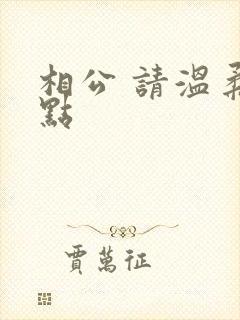 相公 請溫柔
點
賈萬征